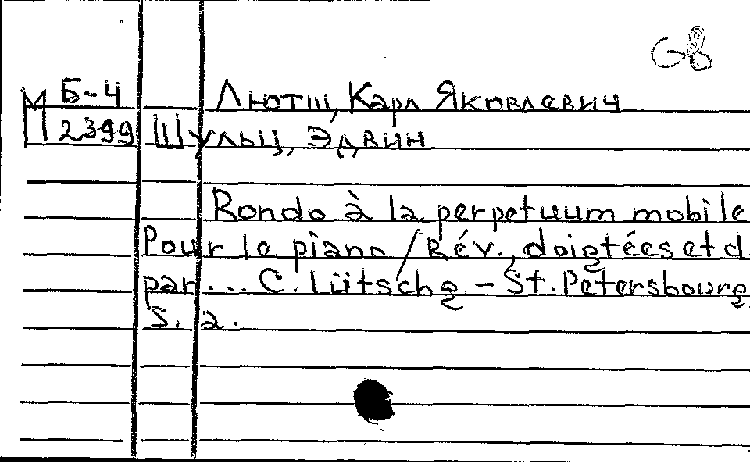 68
Б-4 Лютш, Карл Яковлевич
М 2399 Шульц, Эдвин
Rondo à la perpetuum mobile
Pour le piano / Rév., doigtées et d
par... C. Lütschg – St. Petersbourg
S. a.